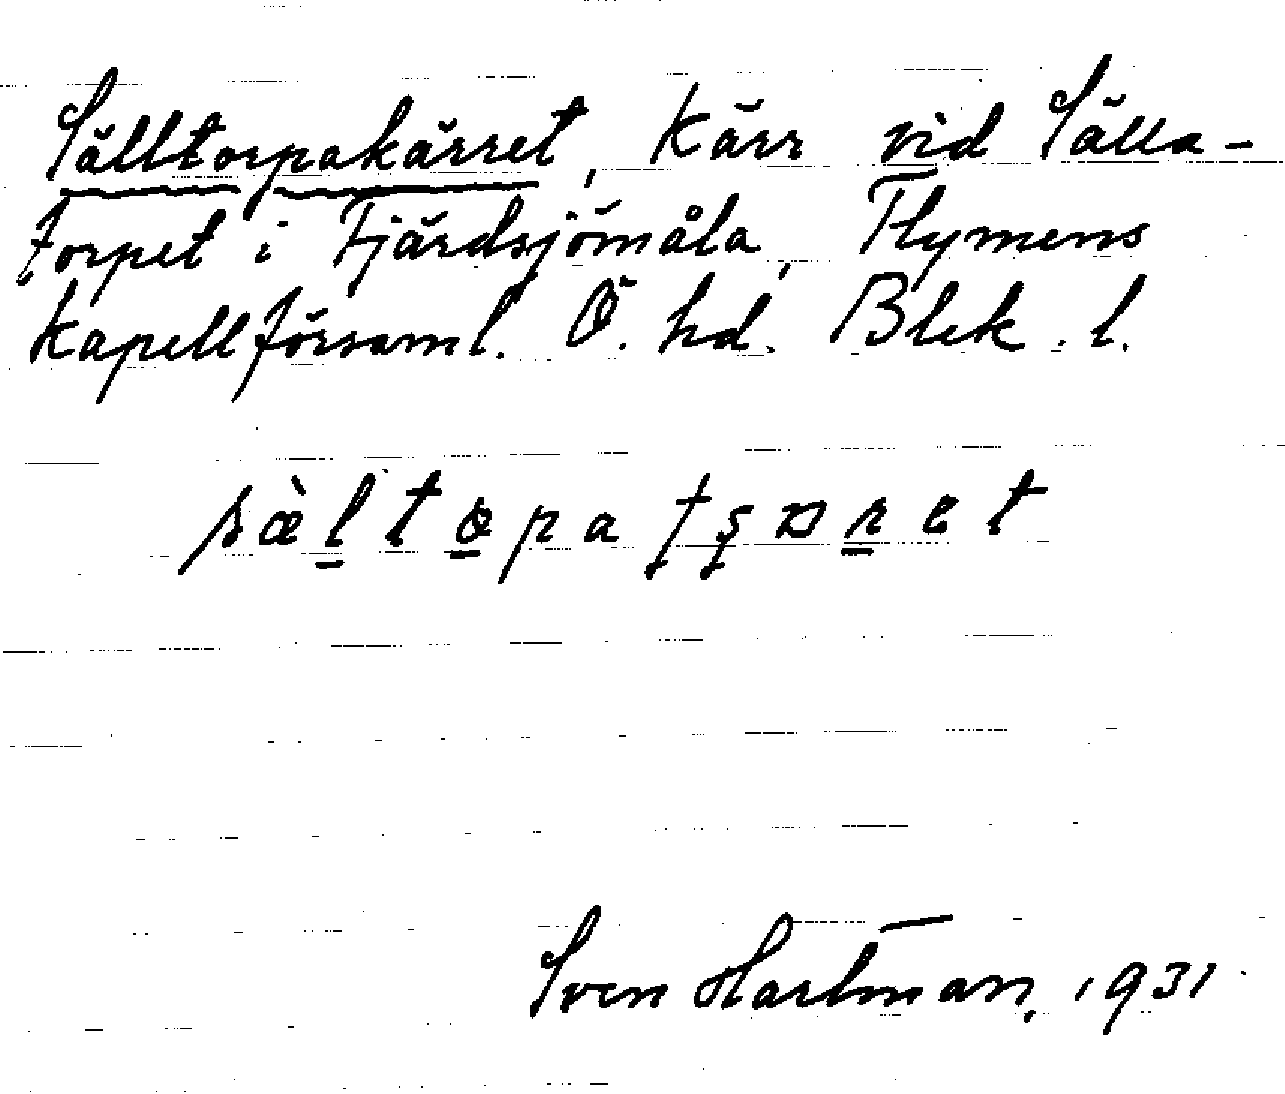 Sälltorpakärret, Kärr vid Sälla-
torpet i Fjärdsjömåla, Flymens
Kapellförsaml. Ö. hd. Blek. l.
Sven Hartman, 1931